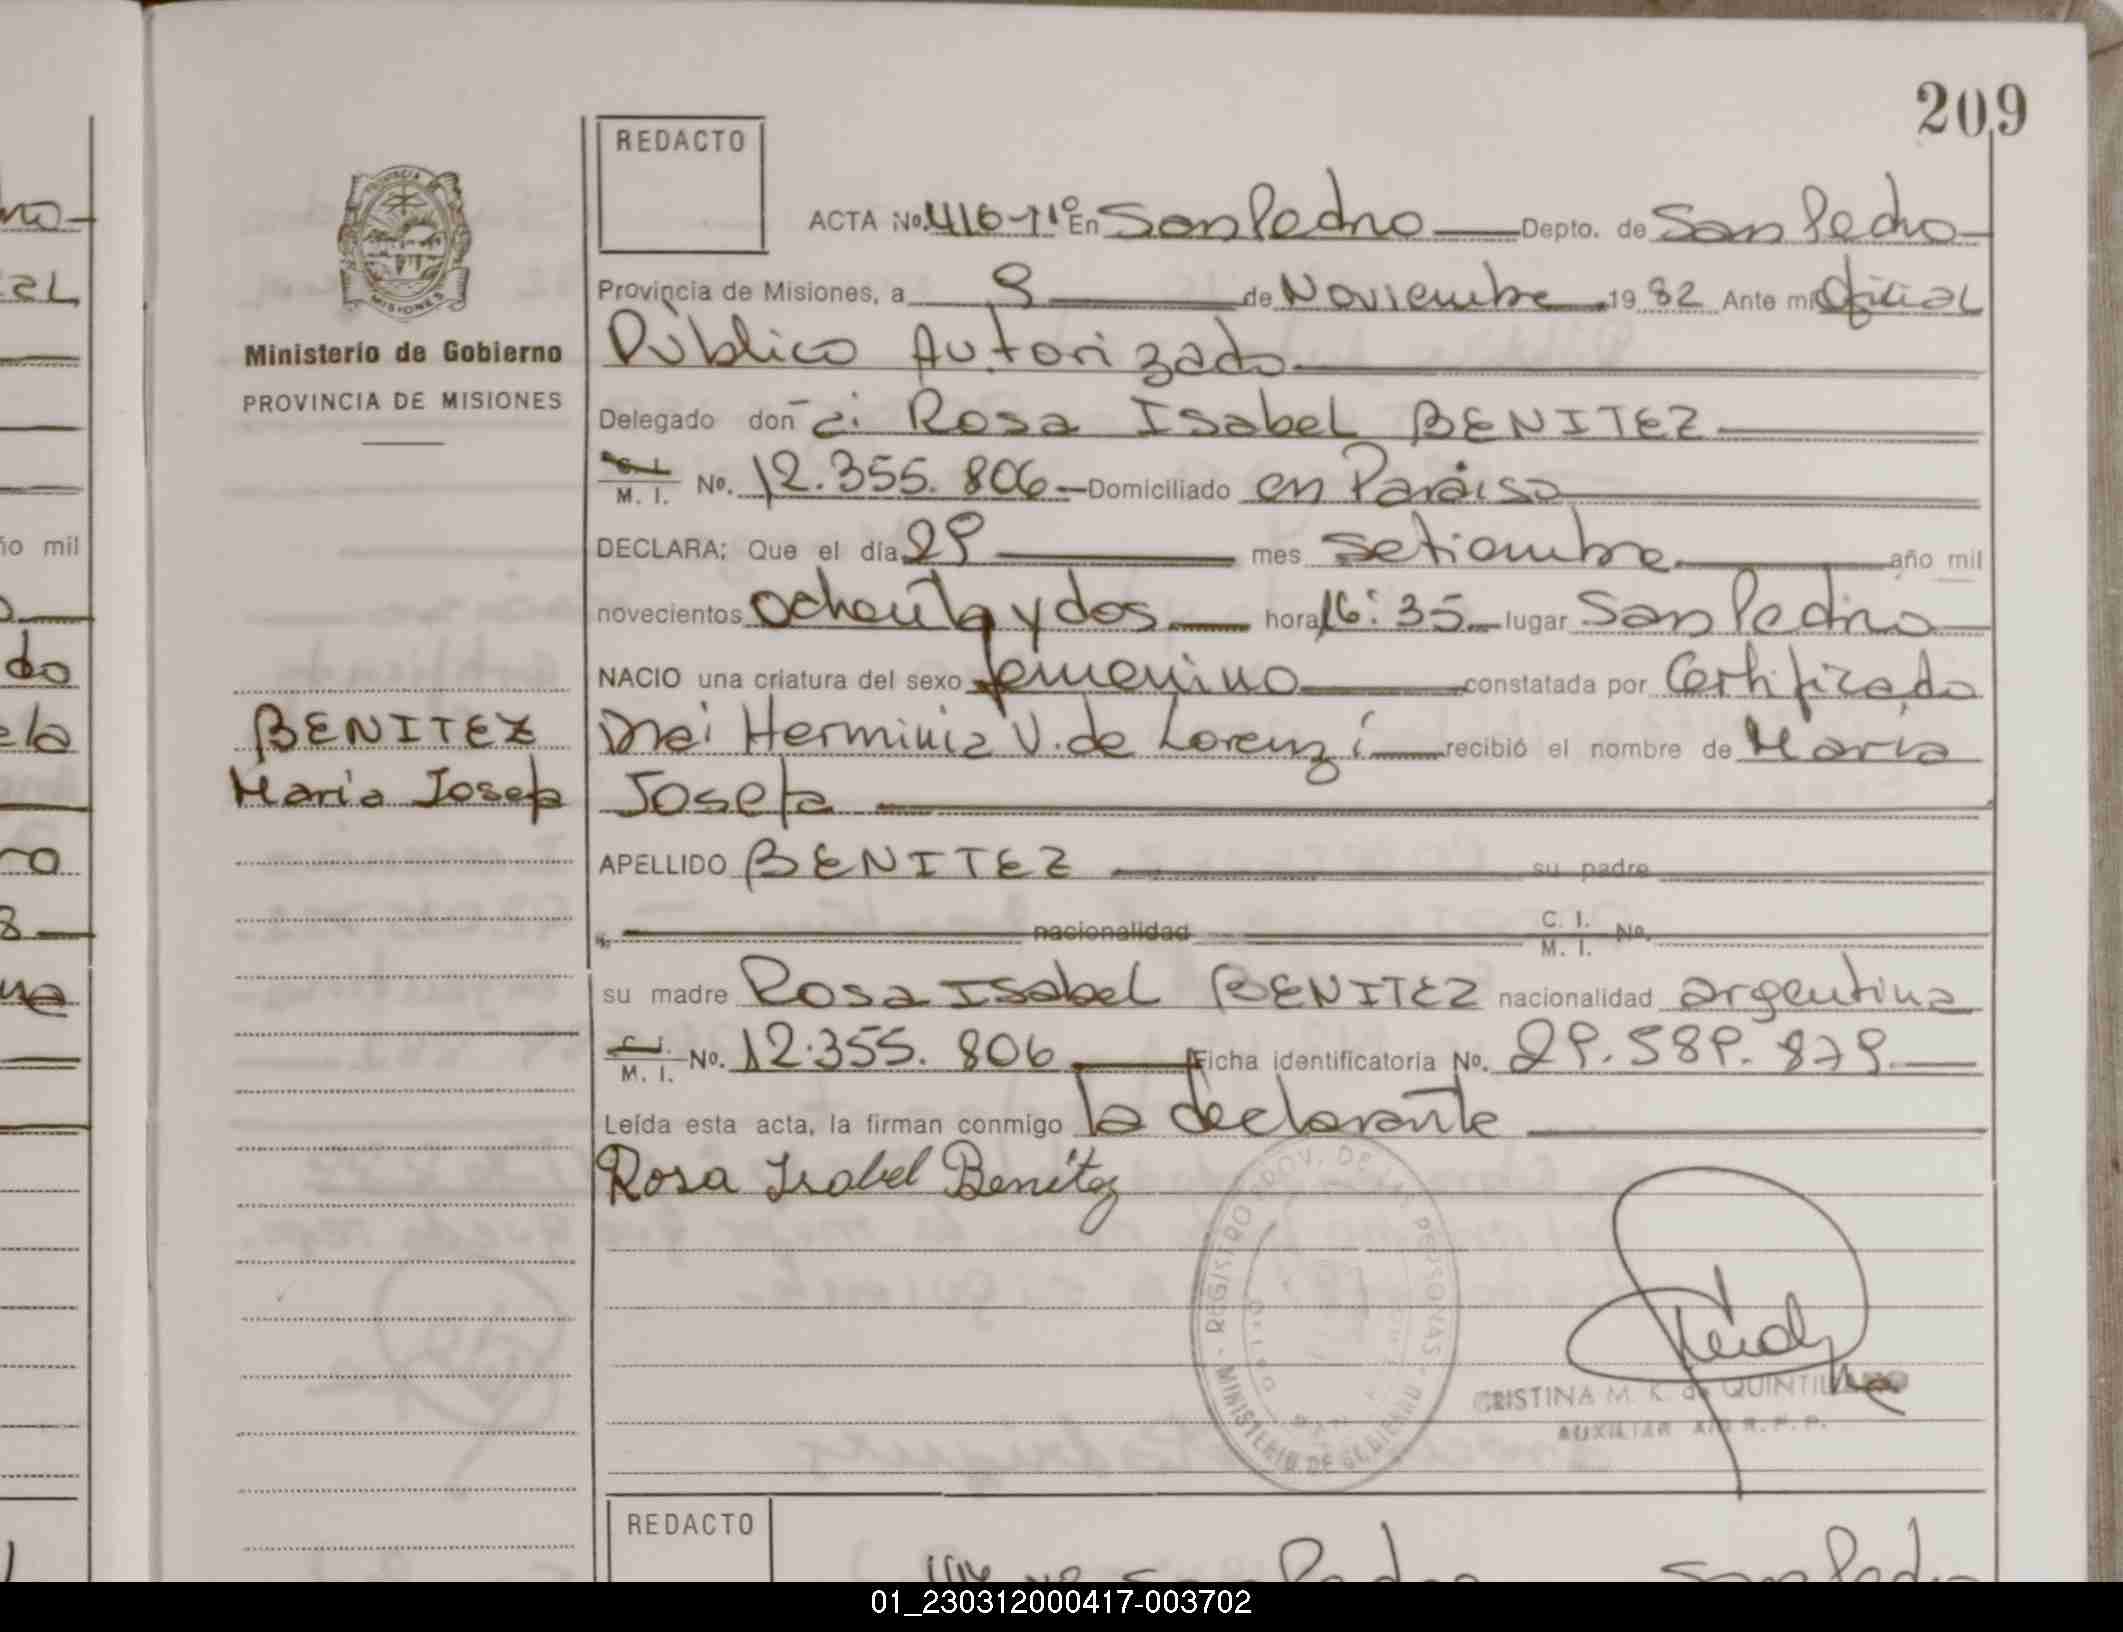 209
REDACTO
ACTA No. 416-T1º En San Pedro Depto. de San Pedro
Provincia de Misiones, a 9 de Noviembre 19 82 Ante mi Oficial
Público Autorizado
Delegado don ci Rosa Isabel BENITEZ
C. I. M. I. No. 12.355.806 Domiciliado en Paraiso
DECLARA: Que el día 29 mes setiembre año mil
novecientos ochenta y dos hora 16:35 lugar San Pedro
NACIO una criatura del sexo femenino constatada por Certificado
Herminia V. de Lorenzi recibió el nombre de María
Josefa
APELLIDO BENITEZ su padre
nacionalidad C. I. M. I. No.
su madre Rosa Isabel BENITEZ nacionalidad argentina
C. I. M. I. No. 12.355.806 Ficha identificatoria No. 29.589.879
Leída esta acta, la firman conmigo la declarante
Rosa Isabel Benítez
REGISTRO PROV. DE LAS PERSONAS
MINISTERIO DE GOBIERNO
CRISTINA M. K. de QUINTILIANO
AUXILIAR R. P. P.
Ministerio de Gobierno
PROVINCIA DE MISIONES
BENITEZ
María Josefa
REDACTO
San Pedro San Pedro
ño mil
do
01_230312000417-003702